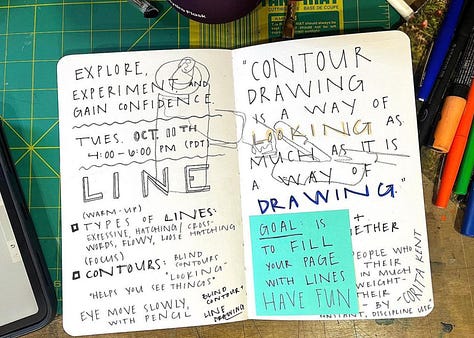 EXPLORE,
EXPERIMENT AND
GAIN CONFIDENCE
TUES. OCT. 11TH
4:00 - 6:00 PM (PDT)
LINE
(WARM-UP)
TYPES OF LINES:
EXPRESSIVE, HATCHING / CROSS-
WORDS, FLOWY, LOOSE HATCHING
(FOCUS)
CONTOURS: BLIND
CONTOURS
"LOOKING"
"HELPS YOU SEE THINGS"
EYE MOVE SLOWLY,
WITH PENCIL
BLIND
CONTOUR
LINE
DRAWING
"CONTOUR
DRAWING
IS A WAY OF
LOOKING AS
MUCH AS IT IS
A WAY OF
DRAWING."
GOAL: IS
TO FILL
YOUR PAGE
WITH LINES
HAVE FUN
+
PEOPLE WHO
THEIR
IN MUCH
WEIGHT-
THEIR
- BY CORITA KENT
DISCIPLINE